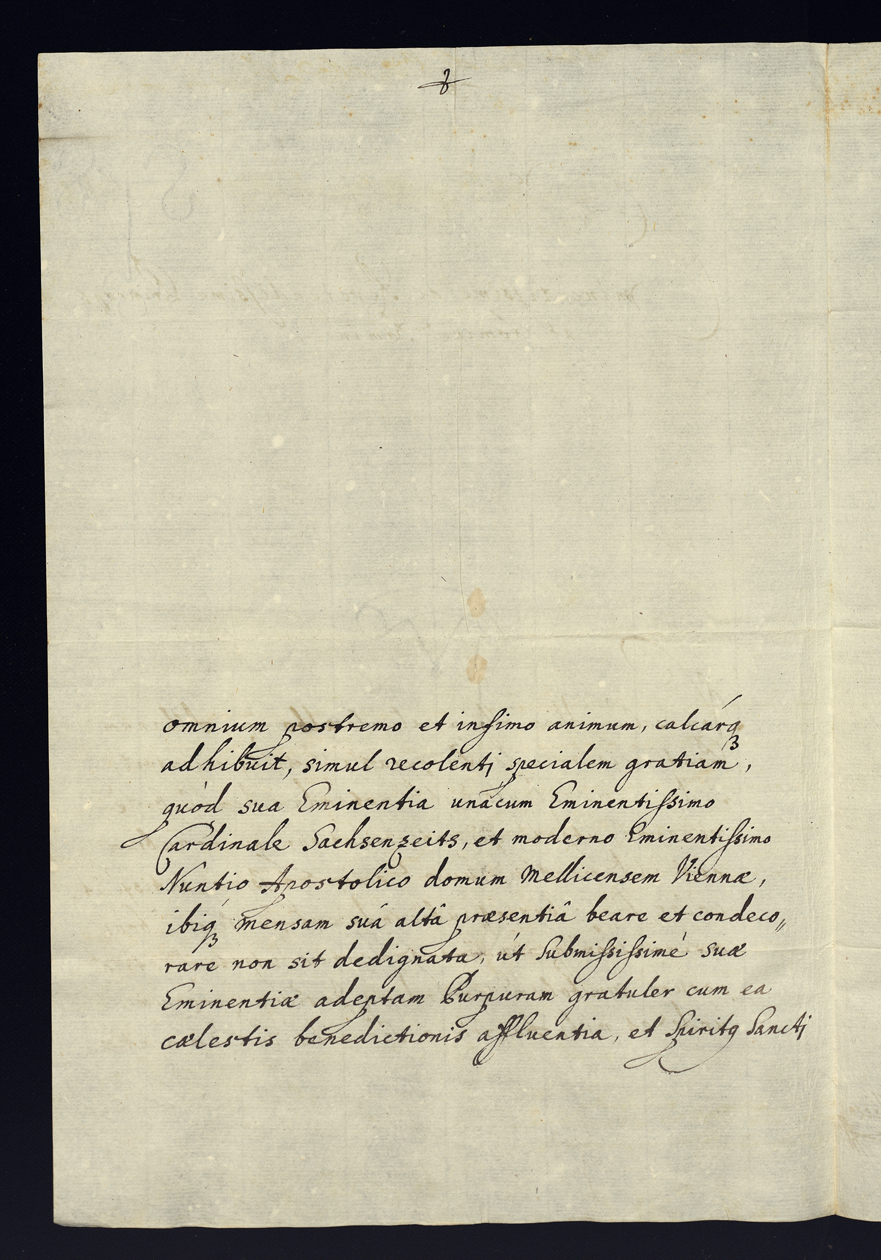 omnium postremo et infimo animum, calcárq₃
adhibuit, simul recolentj specialem gratiam,
quód sua Eminentia unâcum Eminentissimo
Cardinale Sachsenzeits, et moderno Eminentissimo
Nuntio Apostolico domum Mellicensem Viennæ,
ibiq₃ mensam suâ altâ præsentiâ beare et condeco„
rare non sit dedignata, út submississimé suæ
Eminentiæ adeptam Purpuram gratuler cum ea
cælestis benedictionis affluentia, et Spiritꝯ Sanctj